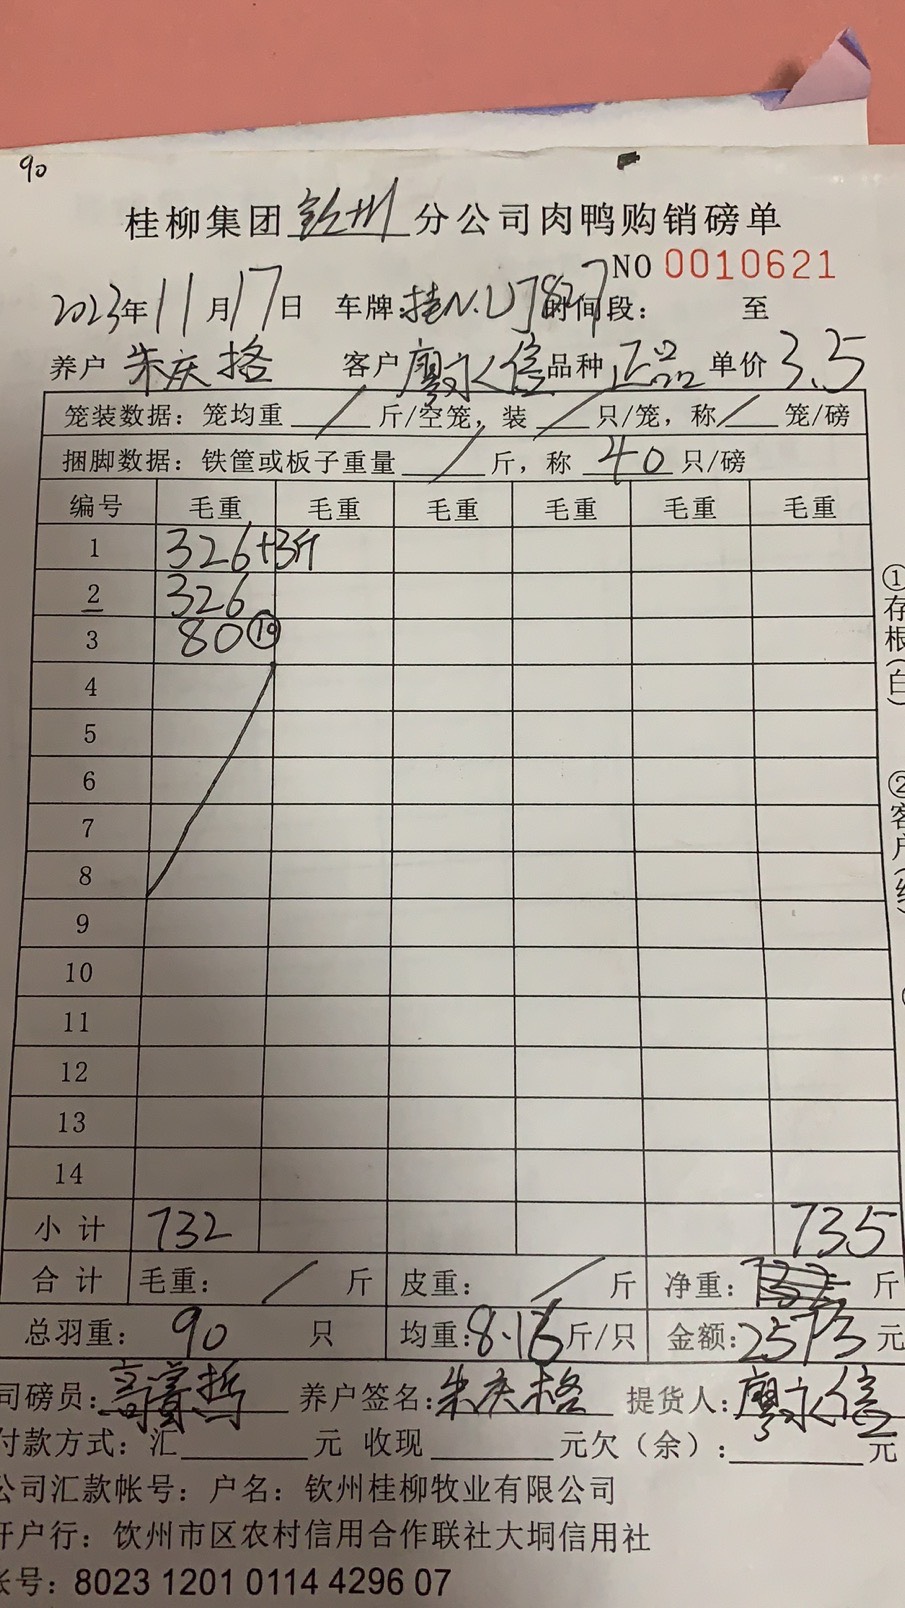 90
桂柳集团钦州分公司肉鸭购销磅单
NO 0010621
2023年11月17日 车牌:桂N.UJ827 时间段: 至
养户 朱庆格 客户 廖永信 品种 正品 单价 3.5
笼装数据: 笼均重 / 斤/空笼, 装 / 只/笼, 称 / 笼/磅
捆脚数据: 铁筐或板子重量 / 斤, 称 40 只/磅
编号 毛重 毛重 毛重 毛重 毛重 毛重
1 326+3斤
2 326
3 80⑩
4
5
6
7
8
9
10
11
12
13
14
小计 732 735
合计 毛重: / 斤 皮重: / 斤 净重: 斤
总羽重: 90 只 均重:8.16斤/只 金额:2573元
司磅员: 养户签名:朱庆格 提货人:廖永信
付款方式: 汇 元 收现 元欠(余): 元
公司汇款帐号: 户名: 钦州桂柳牧业有限公司
开户行: 饮州市区农村信用合作联社大垌信用社
帐号: 8023 1201 0114 4296 07
①存根(白)
②客户(红)